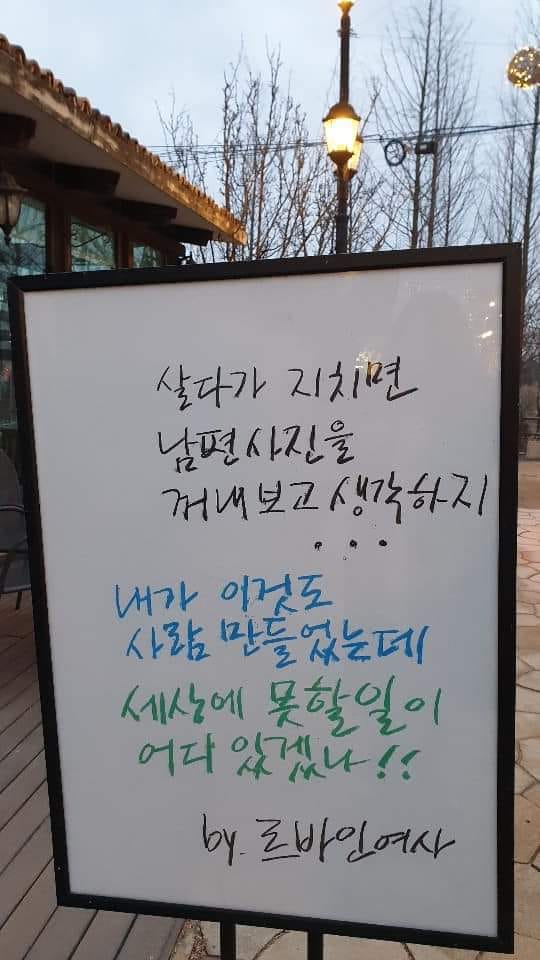 살다가 지치면
남편사진을
꺼내보고 생각하지
...
내가 이것도
사람 만들었는데
세상에 못할일이
어디 있겠나!!
by. 르바인여사